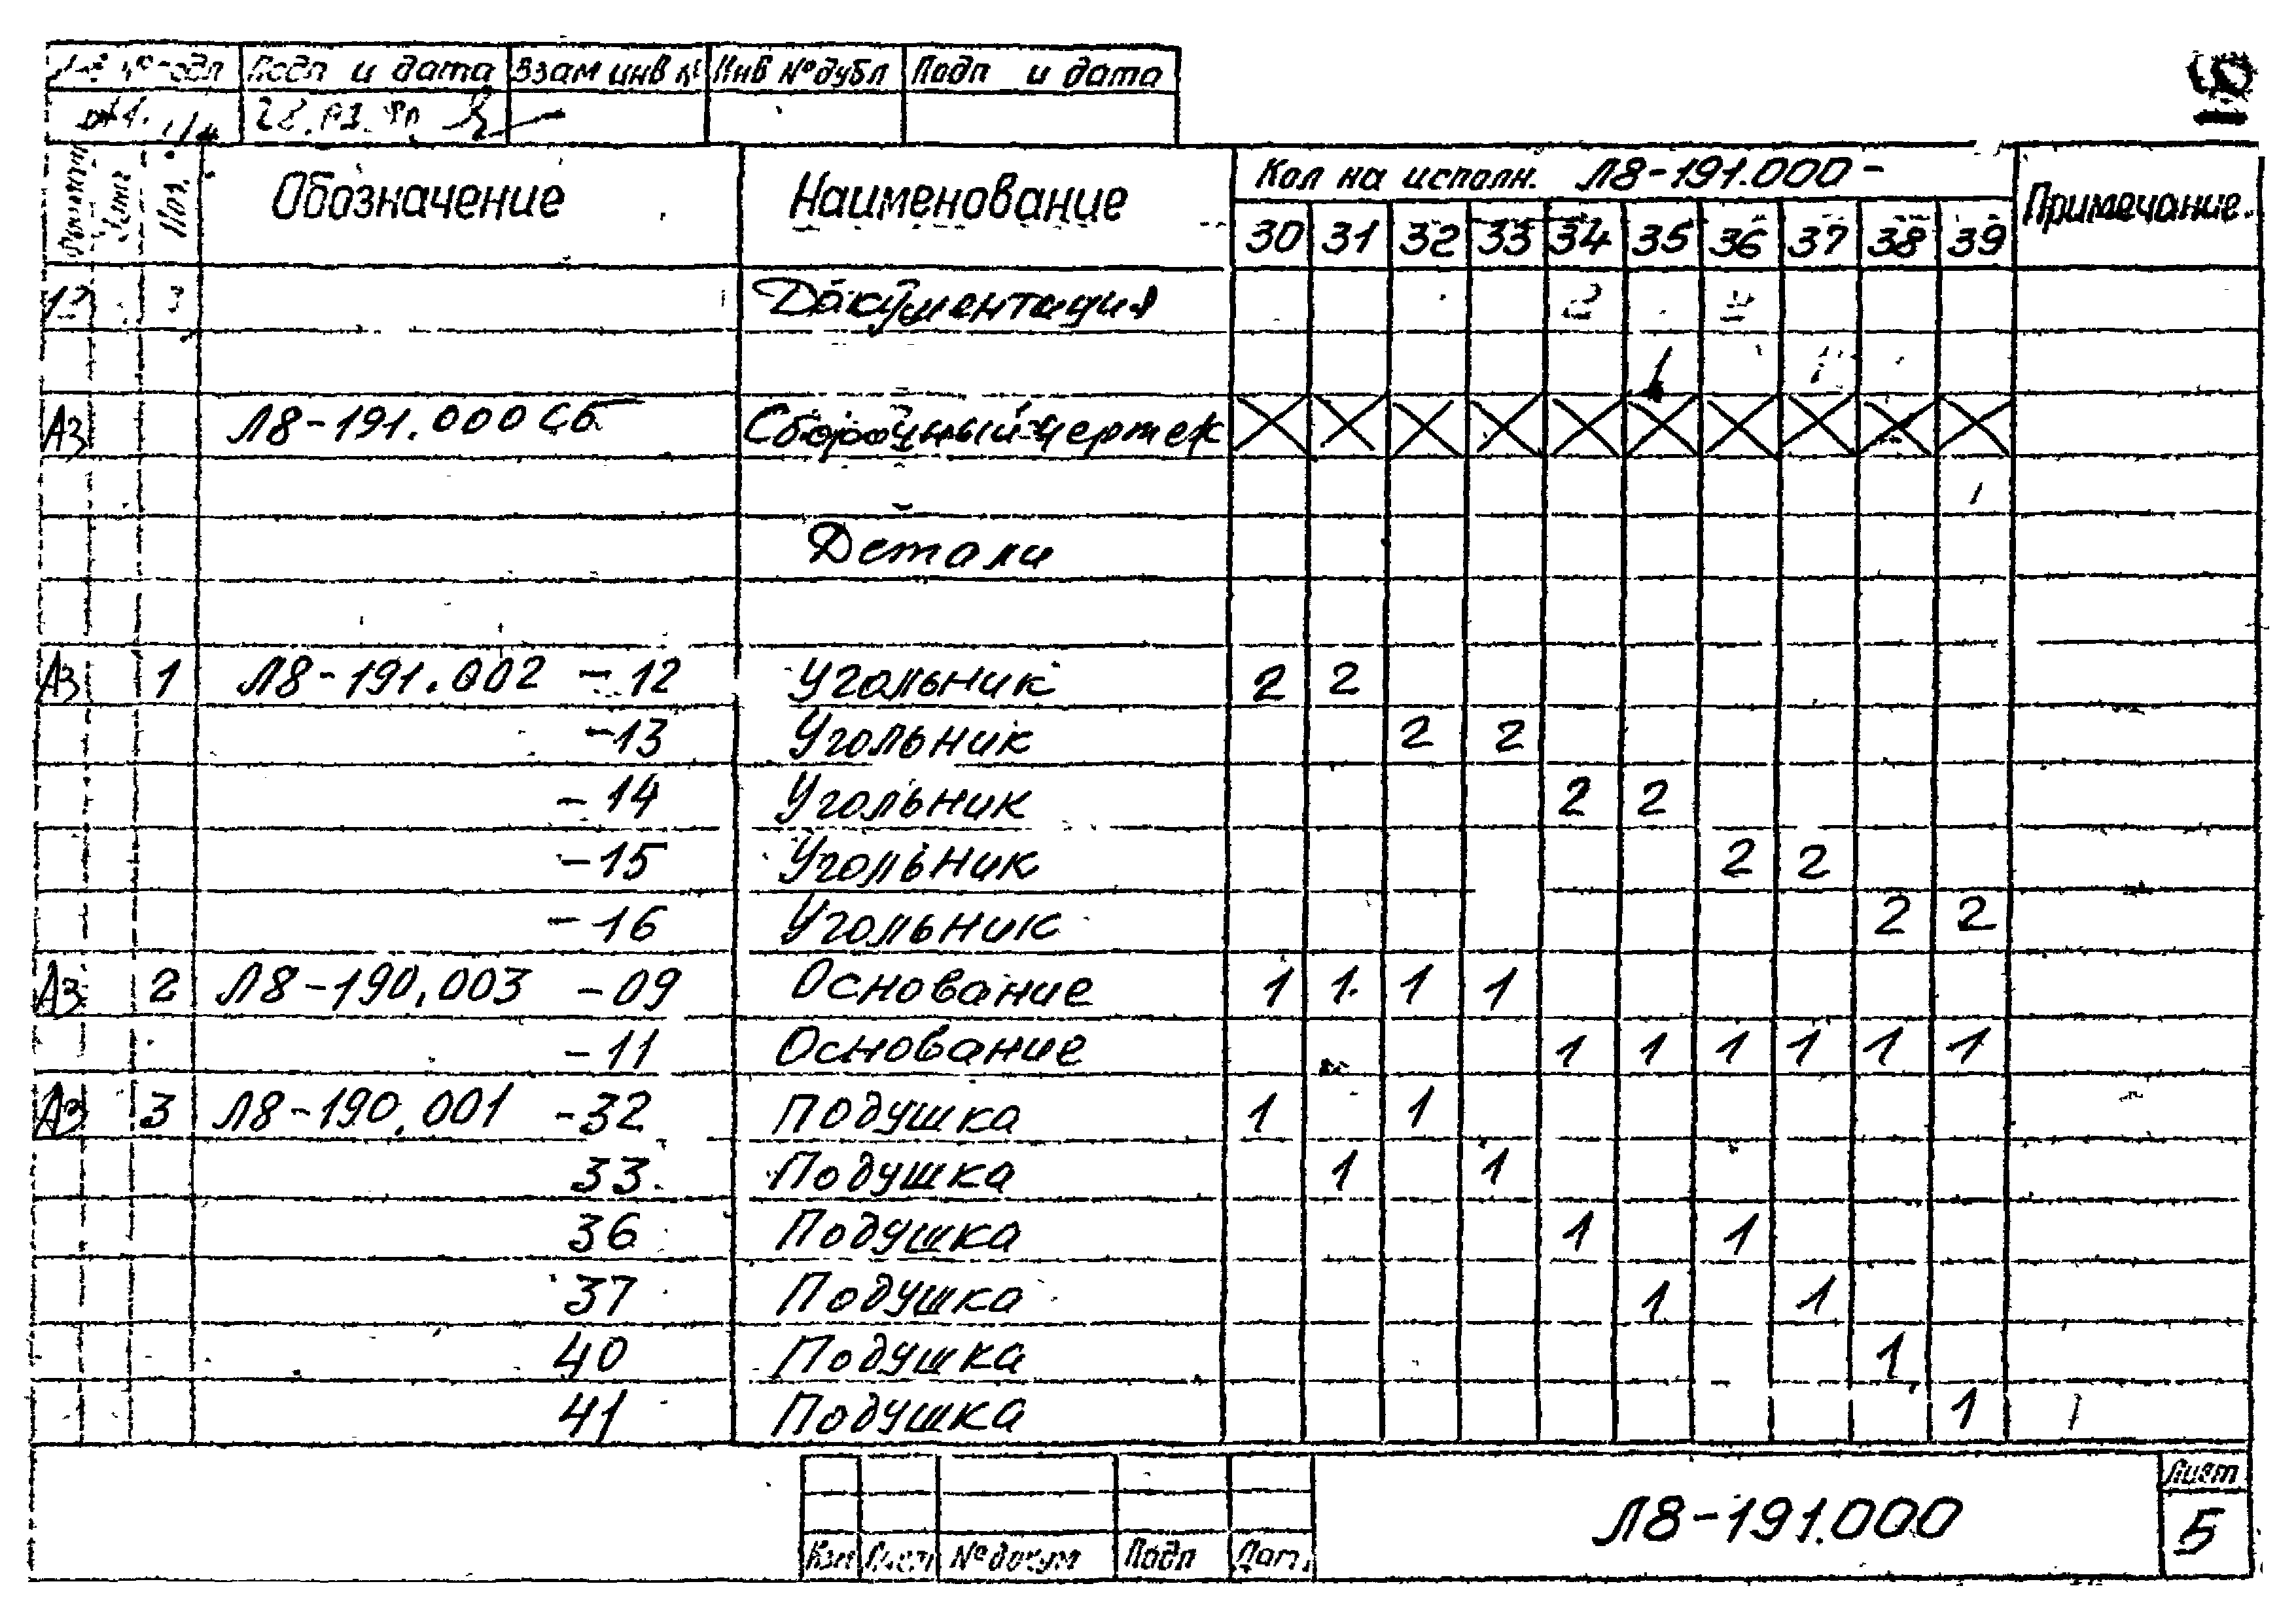 Подп и дата Взам инв № Инв № дубл Подп и дата
Поз. Обозначение Наименование Кол на исполн. Л8-191.000- Примечание
30 31 32 33 34 35 36 37 38 39
Документация
А3 Л8-191.000 СБ Сборочный чертеж
Детали
А3 1 Л8-191.002 -12 Угольник 2 2
-13 Угольник 2 2
-14 Угольник 2 2
-15 Угольник 2 2
-16 Угольник 2 2
А3 2 Л8-190.003 -09 Основание 1 1 1 1
-11 Основание 1 1 1 1 1 1
А3 3 Л8-190.001 -32 Подушка 1 1
33 Подушка 1 1
36 Подушка 1 1
37 Подушка 1 1
40 Подушка 1
41 Подушка 1
Изм Лист № докум Подп Дат. Л8-191.000 Лист
5